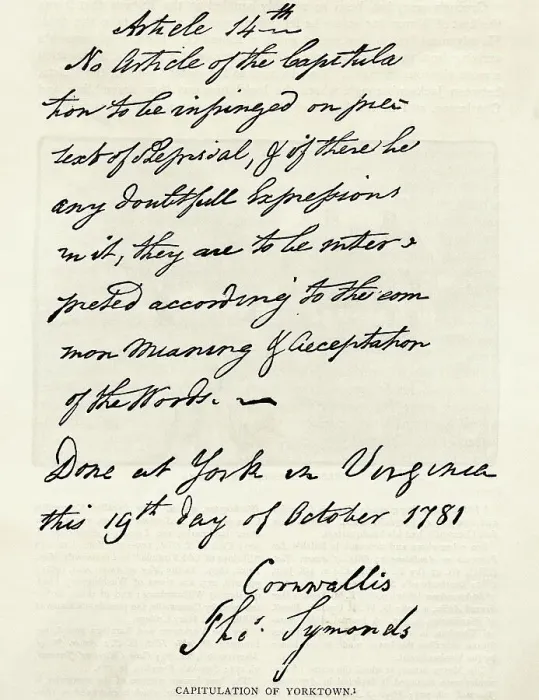 Article 14th
No Article of the Capitula
tion to be infringed on pre-
text of Reprisal, & if there be
any doubtfull Expressions
in it, they are to be inter-
preted according to the com
mon Meaning & Acceptation
of the Words. —
Done at York in Virginia
this 19th day of October 1781
Cornwallis
Thos. Symonds
CAPITULATION OF YORKTOWN.¹